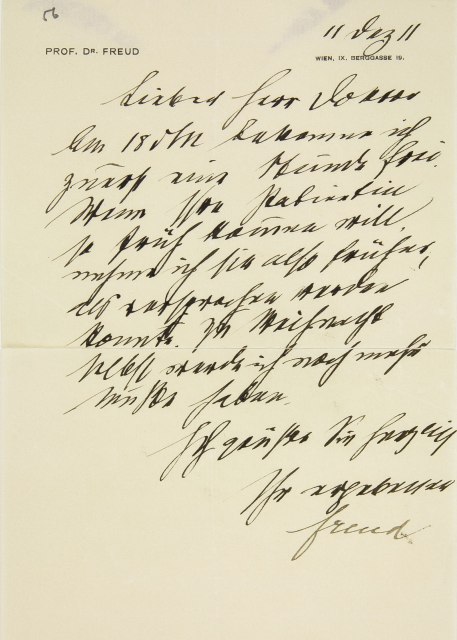 56
11 Dez 11
PROF. DR. FREUD
WIEN, IX. BERGGASSE 19.
Lieber Herr Doktor
Am 18 d M bekomme ich
zuerst eine Stunde frei.
Wenn Ihre Patientin
so früh kommen will,
nehme ich sie also früher,
als versprochen werden
konnte. Zu Weihnacht
selbst werde ich noch mehr
Muße haben.
Ich grüße Sie herzlich
Ihr ergebener
Freud